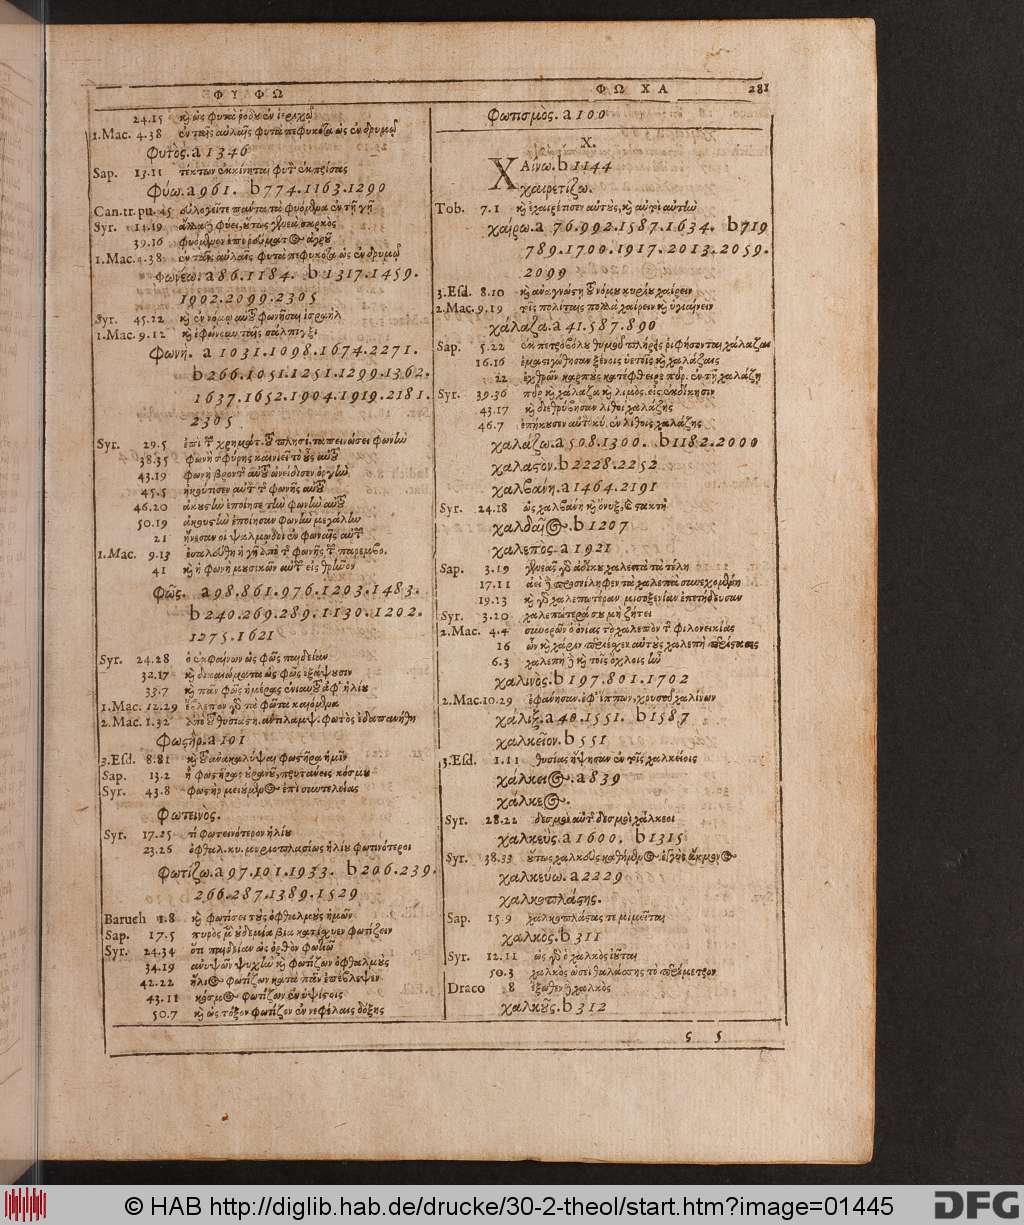 Φ Υ Φ Ω
Φ Ω Χ Α 281
24.15 κὶ ὡς φυτὰ ῥόδου ἐν ἱεριχῷ
1.Mac. 4.38 ἐν ταῖς αὐλαῖς φυτὰ πεφυκότα ὡς ἐν δρυμῷ
Φυτὸς. a 1346
Sap. 13.11 τέκτων ἐκκίνηται φυτὸν ἐκπρίσας
Φύω. a 961. b 774.1163.1290
Can.tr.pu. 45 εὐλογεῖτε πάντα τὰ φυόμενα ἐν τῇ γῇ
Syr. 14.19 φύει, οὕτως γενεὰ σαρκὸς
39.16 φυόμενον ἐπὶ ῥεύματος ἀγροῦ
1.Mac. 4.38 ἐν ταῖς αὐλαῖς φυτὰ πεφυκότα ὡς ἐν δρυμῷ
Φωνέω. a 86.1184. b 1317.1459.
1902.2099.2305
Syr. 45.22 φωνῆσαι ἰσραὴλ
1.Mac. 9.12 κὶ ἐφώνουν ταῖς σάλπιγξι
Φωνή. a 1031.1098.1674.2271.
b 266.1051.1251.1299.1362.
1637.1652.1904.1919.2181.
2305
Syr. 29.5 ἐπὶ τῶν χρημάτ. τοῦ πλησί. ταπεινώσει φωνὴν
38.35 φωνὴ σφύρης καινιεῖ τὸ οὖς αὐτοῦ
43.19 φωνὴ βροντῆς αὐτοῦ ὠνείδισεν γῆν
45.5 ἠκούτισεν αὐτὸν τῆς φωνῆς αὐτοῦ
46.20 φωνὴν αὐτοῦ
50.19 ἐποίησαν φωνὴν μεγάλην
21 ᾔνεσαν οἱ ψαλμῳδοὶ ἐν φωναῖς αὐτῶν
1.Mac. 9.13 ἐσαλεύθη ἡ γῆ ἀπὸ τῆς φωνῆς τῶν παρεμβο.
41 κὶ ἡ φωνὴ μουσικῶν αὐτῶν εἰς θρῆνον
Φῶς. a 98.861.976.1203.1483.
b 240.269.289.1130.1202.
1275.1621
Syr. 24.28 ὁ ἐκφαίνων ὡς φῶς παιδείαν
32.17 κὶ δικαιώματα ὡς φῶς ἐξάψουσιν
33.7 κὶ πᾶν φῶς ἡμέρας ἐνιαυτοῦ ἀφ' ἡλίου
1.Mac. 12.29 ἔβλεπον γὰρ τὰ φῶτα καιόμενα
2.Mac. 1.32 φωτὸς ἐδαπανήθη
Φωςήρ. a 101
3.Esd. 8.81 κὶ τοῦ ἀνακαλύψαι φωςῆρα ἡμῖν
Sap. 13.2 ἢ φωςῆρας οὐρανοῦ, πρυτάνεις κόσμου
Syr. 43.8 φωςὴρ μειούμενος ἐπὶ συντελείας
Φωτεινὸς.
Syr. 17.25 τί φωτεινότερον ἡλίου
23.26 ὀφθαλ. κυ. μυριοπλασίως ἡλίου φωτινότεροι
Φωτίζω. a 97.101.1933. b 206.239.
266.287.1389.1529
Baruch 1.8 κὶ φωτίσει τοὺς ὀφθαλμοὺς ἡμῶν
Sap. 17.5 πυρὸς μὲν οὐδεμία βία κατίσχυεν φωτίζειν
Syr. 24.34 ὅτι παιδείαν ὡς ὄρθρον φωτιῶ
34.19 ἀνυψῶν ψυχὴν κὶ φωτίζων ὀφθαλμοὺς
42.22 ἥλιος φωτίζων κατὰ πᾶν ἐπέβλεψεν
43.11 κόσμος φωτίζων ἐν ὑψίςοις
50.7 κὶ ὡς τόξον φωτίζον ἐν νεφέλαις δόξης
Φωτισμὸς. a 100
X.
ΧΑίνω. b 1144
χαιρετίζω.
Tob. 7.1 κὶ ἐχαιρέτισεν αὐτοὺς, κὶ αὐτοὶ αὐτὴν
χαίρω. a 76.992.1587.1634. b 719
789.1700.1917.2013.2059.
2099
3.Esd. 8.10 κυρίου χαίρειν
2.Mac. 9.19 τοῖς πολίταις πολλὰ χαίρειν κὶ ὑγιαίνειν
χάλαζα. a 41.587.890
Sap. 5.22 ἐκ πετροβόλου θυμοῦ πλήρεις ῥιφήσονται χάλαζαι
16.16 ἐμαςιγώθησαν ξένοις ὑετοῖς κὶ χαλάζαις
22 ἐχθρῶν καρποὺς κατέφθειρε πῦρ. ἐν τῇ χαλάζῃ
Syr. 39.36 πῦρ κὶ χάλαζα κὶ λιμὸς, εἰς ἐκδίκησιν
43.17 κὶ διεθρύβησαν λίθοι χαλάζης
46.7 ἐπήκουσεν αὐτοῦ κύ. ἐν λίθοις χαλάζης
χαλάζω. a 508.1300. b 1182.2000
χαλαςον. b 2228.2252
χαλβάνη. a 1464.2191
Syr. 24.18 ὡς χαλβάνη κὶ ὄνυξ, κὶ ςακτὴ
χαλδαῖος. b 1207
χαλεπὸς. a 1921
Sap. 3.19 γενεᾶς γὰρ ἀδίκου χαλεπὰ τὰ τέλη
17.11 ἀεὶ δὲ προσείληφεν τὰ χαλεπὰ συνεχομένη
19.13 κὶ γὰρ χαλεπωτέραν μισοξενίαν ἐπετήδευσαν
Syr. 3.20 χαλεπώτερά σου μὴ ζήτει
2.Mac. 4.4 συνορῶν ὁ ὀνίας τὸ χαλεπὸν τῆς φιλονεικίας
16 ὧν κὶ χάριν περιέσχεν αὐτοὺς χαλεπὴ περίςασις
6.3 χαλεπὴ δὲ κὶ τοῖς ὄχλοις ἦν
χαλινὸς. b 197.801.1702
2.Mac. 10.29 ἐφάνησαν ἐφ' ἵππων, χρυσοῦ χαλίνων
χάλιξ. a 40.1551. b 1587
χαλκεῖον. b 551
3.Esd. 1.11 θυσίας ἥψησαν ἐν τοῖς χαλκείοις
χάλκειος. a 839
χάλκεος.
Syr. 28.22 δεσμοὶ αὐτοῦ δεσμοὶ χάλκεοι
χαλκεὺς. a 1600. b 1315
Syr. 38.33 οὕτως χαλκεὺς καθήμενος ἐγγὺς ἄκμονος
χαλκεύω. a 2229
χαλκοπλάσης.
Sap. 15.9 χαλκοπλάςας τε μιμεῖται
χαλκὸς. b 311
Syr. 12.11 ὡς γὰρ ὁ χαλκὸς ἰοῦται
50.3 χαλκὸς ὡσεὶ θαλάσσης τὸ περίμετρον
Draco 8 ἔξωθεν δὲ χαλκὸς
χαλκοῦς. b 312
ς 5
© HAB http://diglib.hab.de/drucke/30-2-theol/start.htm?image=01445
DFG